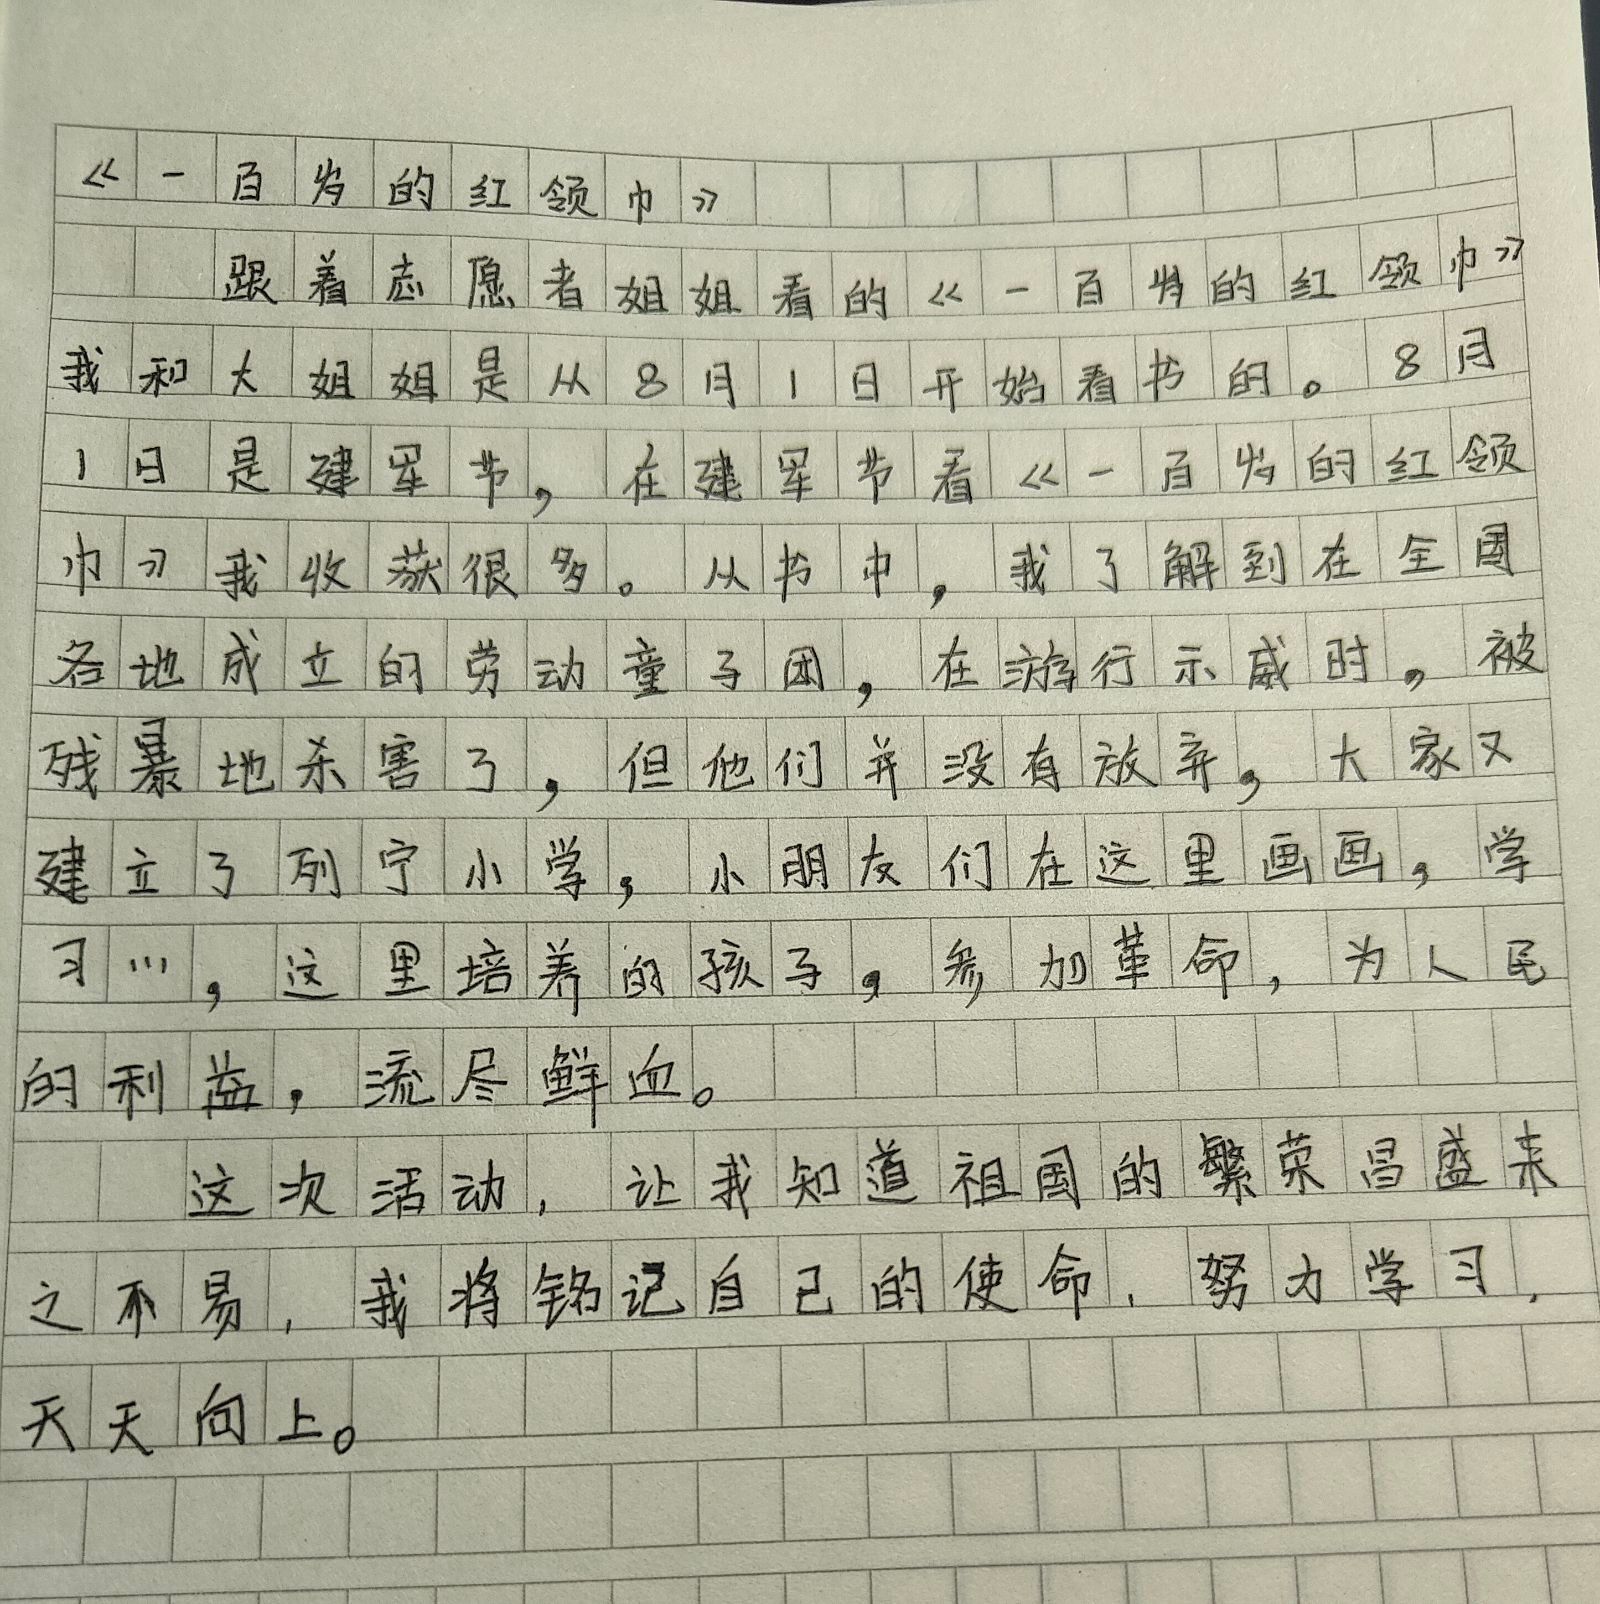 《一百岁的红领巾》
跟着志愿者姐姐看的《一百岁的红领巾》
我和大姐姐是从8月1日开始看书的。8月
1日是建军节，在建军节看《一百岁的红领
巾》我收获很多。从书中，我了解到在全国
各地成立的劳动童子团，在游行示威时，被
残暴地杀害了，但他们并没有放弃，大家又
建立了列宁小学，小朋友们在这里画画，学
习…，这里培养的孩子，参加革命，为人民
的利益，流尽鲜血。
这次活动，让我知道祖国的繁荣昌盛来
之不易，我将铭记自己的使命，努力学习，
天天向上。